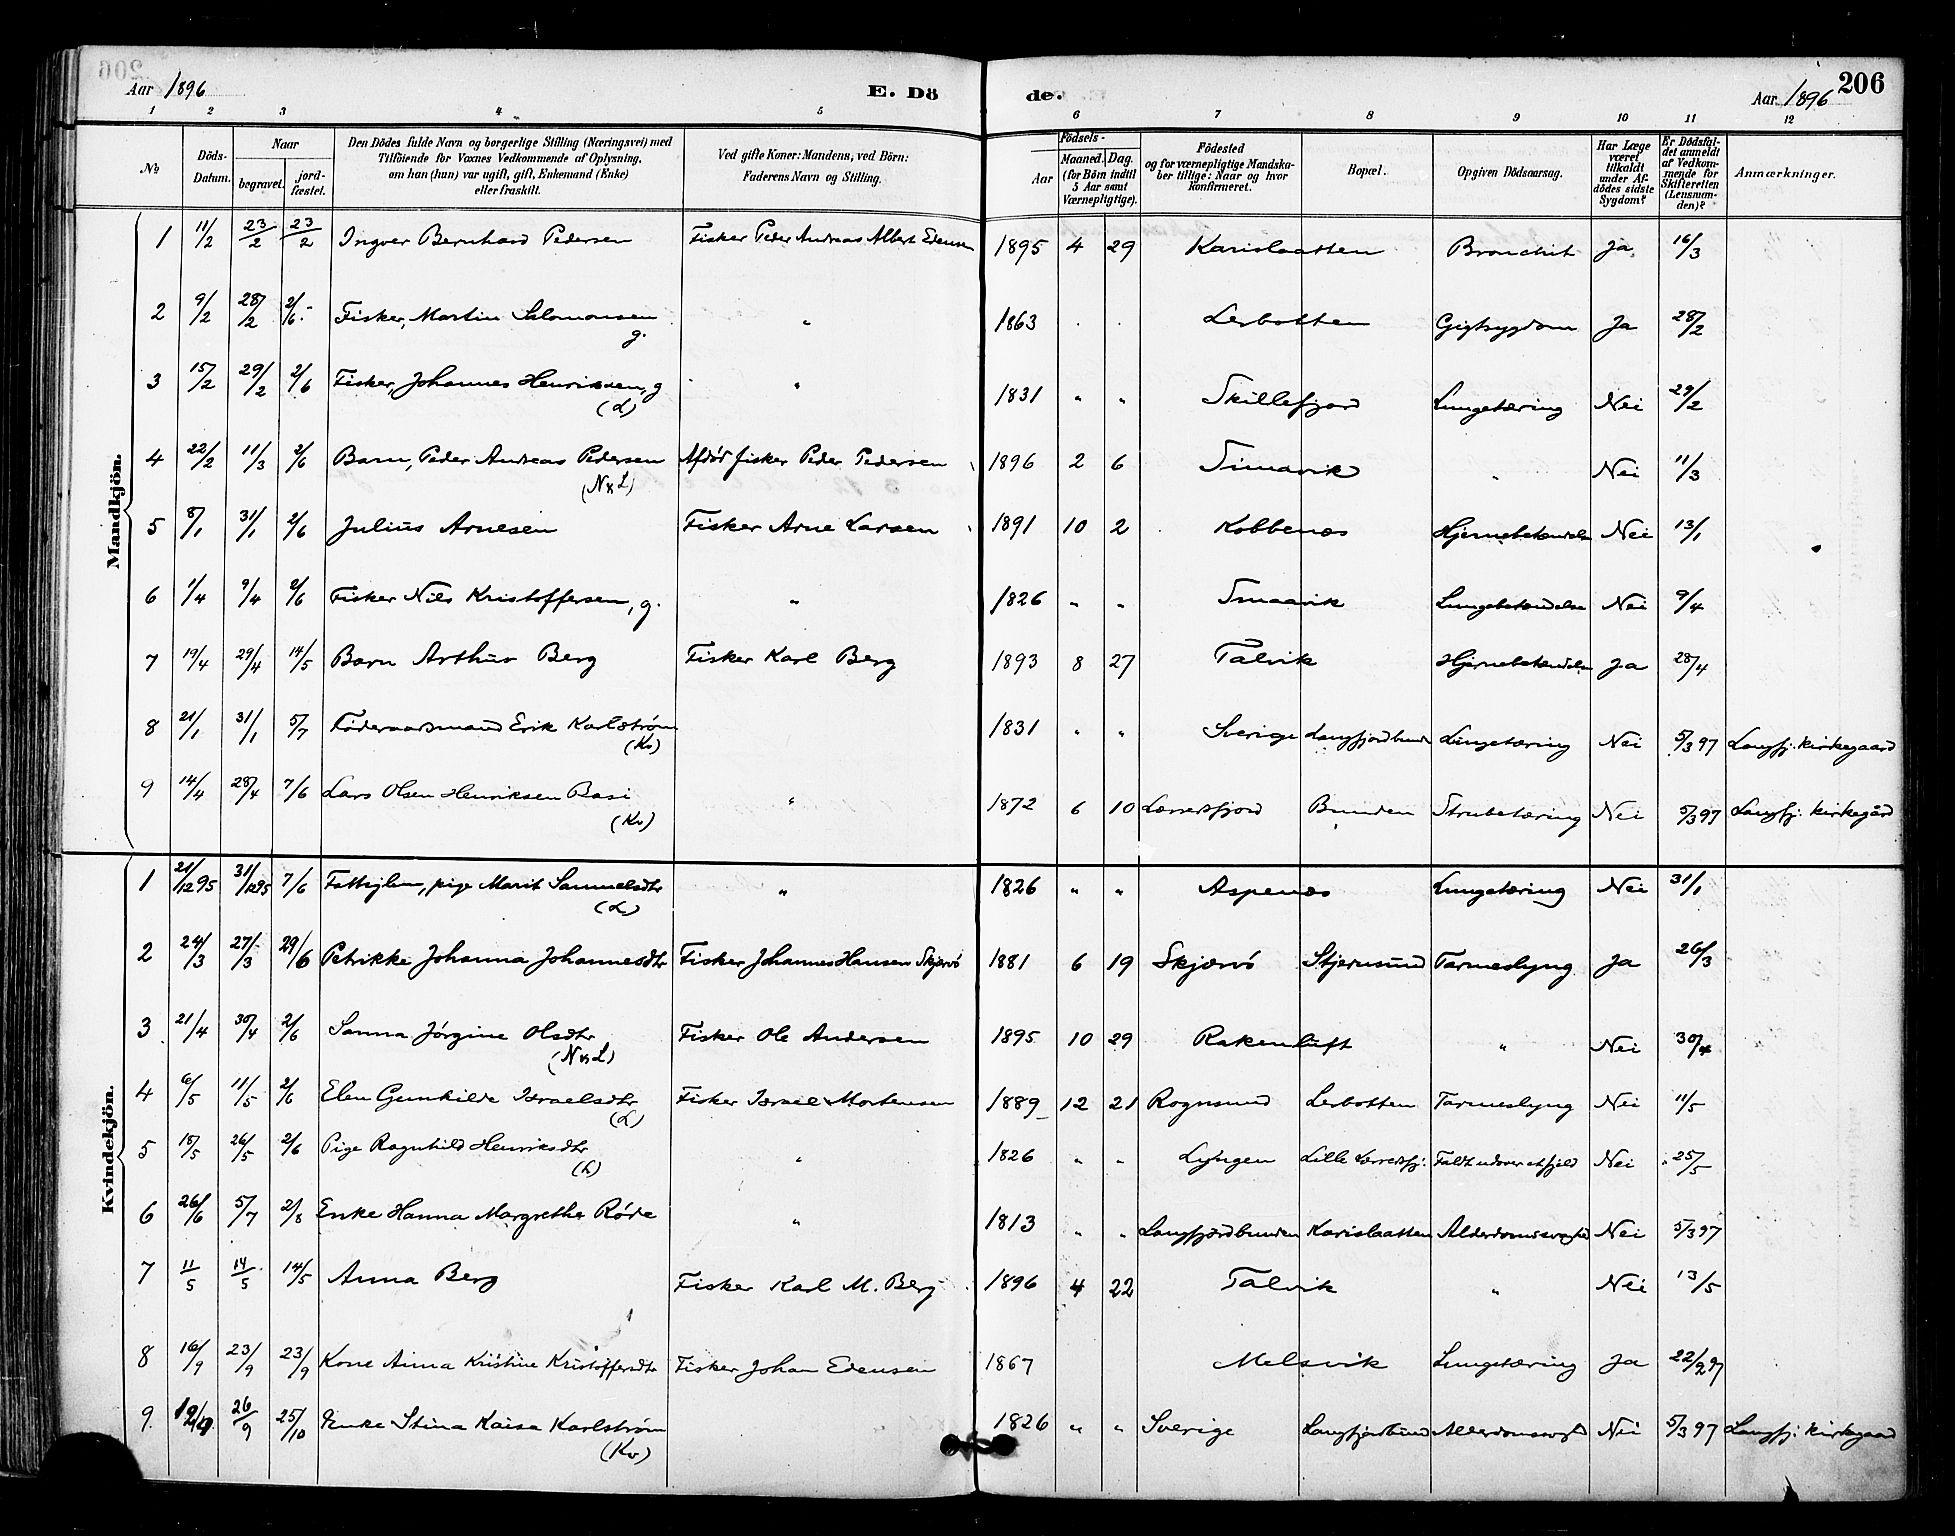 Aar 1896 E. Dö de. Aar 1896 206
1 2 3 4 5 6 7 8 9 10 11 12
№ Döds-Datum. Naar begravet. jordfæstet. Den Dödes fulde Navn og borgerlige Stilling (Næringsvei) med Tilföiende for Voxnes Vedkommende af Oplysning, om han (hun) var ugift, gift, Enkemand (Enke) eller fraskilt. Ved gifte Koner: Mandens, ved Börn: Faderens Navn og Stilling. Födsels- Aar Maaned. Dag. (for Börn indtil 5 Aar samt Værnepligtige). Födested og for værnepligtige Mandskaber tillige: Naar og hvor konfirmeret. Bopæl. Opgiven Dödsaarsag. Har Læge været tilkaldt under Afdödes sidste Sygdom? Er Dödsfaldet anmeldt af Vedkommende for Skifteretten (Lensmanden)? Anmærkninger.
Mandkjön.
1 11/2 23/2 23/2 Ingver Bernhard Pedersen Fisker Peder Andreas Albert Edensen 1895 4 29 Karislaatten Bronchit ja 16/3
2 9/2 28/2 2/6 Fisker, Martin Salomonsen g. " 1863 Lerbotten Gigtsygdom Ja 28/2
3 15/2 29/2 2/6 Fisker, Johannes Henriksen, g (L) " 1831 " " Skillefjord Lungetæring Nei 29/2
4 22/2 11/3 2/6 Barn, Peder Andreas Pedersen (N&L) Afdød fisker Peder Pedersen 1896 2 6 Simavik " Nei 11/3
5 8/1 31/1 2/6 Julius Arnesen Fisker Arne Larsen 1891 10 2 Kobbenæs Hjernebetændelse Nei 13/1
6 1/4 9/4 2/6 Fisker Nils Kristoffersen, g. " 1826 " " Smaavik Lungebetændelse Nei 9/4
7 19/4 29/4 14/5 Barn Arthur Berg Fisker Karl Berg 1893 8 27 Talvik Hjernebetændelse Ja 28/4
8 21/1 31/1 5/7 Föderaadsmand Erik Karlström (Kv) 1831 " " Sverige Langfjordbunden Lungetæring Nei 5/3 97 Langfj. kirkegaard
9 14/4 28/4 7/6 Lars Olsen Henriksen Basi (Kv) " 1872 6 10 Lerresfjord Bunden Strubetæring Nei 5/3 97 Langfj. kirkegård
Kvindekjön.
1 21/12 95 31/12 95 7/6 Fattiglem, pige Marit Samuelsdtr (L) " 1826 " " Aspenæs Lungetæring Nei 31/1
2 24/3 27/3 29/6 Petrikke Johanna Johannesdtr Fisker Johannes Hansen Skjervö 1881 6 19 Skjærvö Stjernsund Tarmeslyng Ja 26/3
3 21/4 30/4 2/6 Sanna Jörgine Olsdtr (N&L) Fisker Ole Andersen 1895 10 29 Rakenluft " Nei 30/4
4 6/5 11/5 2/6 Elen Gunhilde Israelsdtr (L) Fisker Israel Mortensen 1889 12 21 Rognsund Lerbotten Tarmeslyng Nei 11/5
5 15/5 26/5 2/6 Pige Ragnhild Henriksdtr (L) " 1826 " " Lyngen Lille Lerresfj. Faldt udover et fjeld Nei 25/5
6 26/6 5/7 2/8 Enke Hanna Margrethe Röde " 1813 " " Langfjordbunden Karislaatten Alderdomssvaghed Nei 5/3 97
7 11/5 14/5 14/5 Anna Berg Fisker Karl M. Berg 1896 4 22 Talvik " Nei 13/5
8 16/9 23/9 23/9 Kone Anna Kristine Kristoffersdtr Fisker Johan Edensen 1867 Melsvik Lungetæring Ja 22/2 97
9. 26/9 25/10 Enke Stina Kaisa Karlström (Kv) 1826 " " Sverige Langfjordbund Alderdomssvaghd Nei 5/3 97 Langfj. kirkegaard